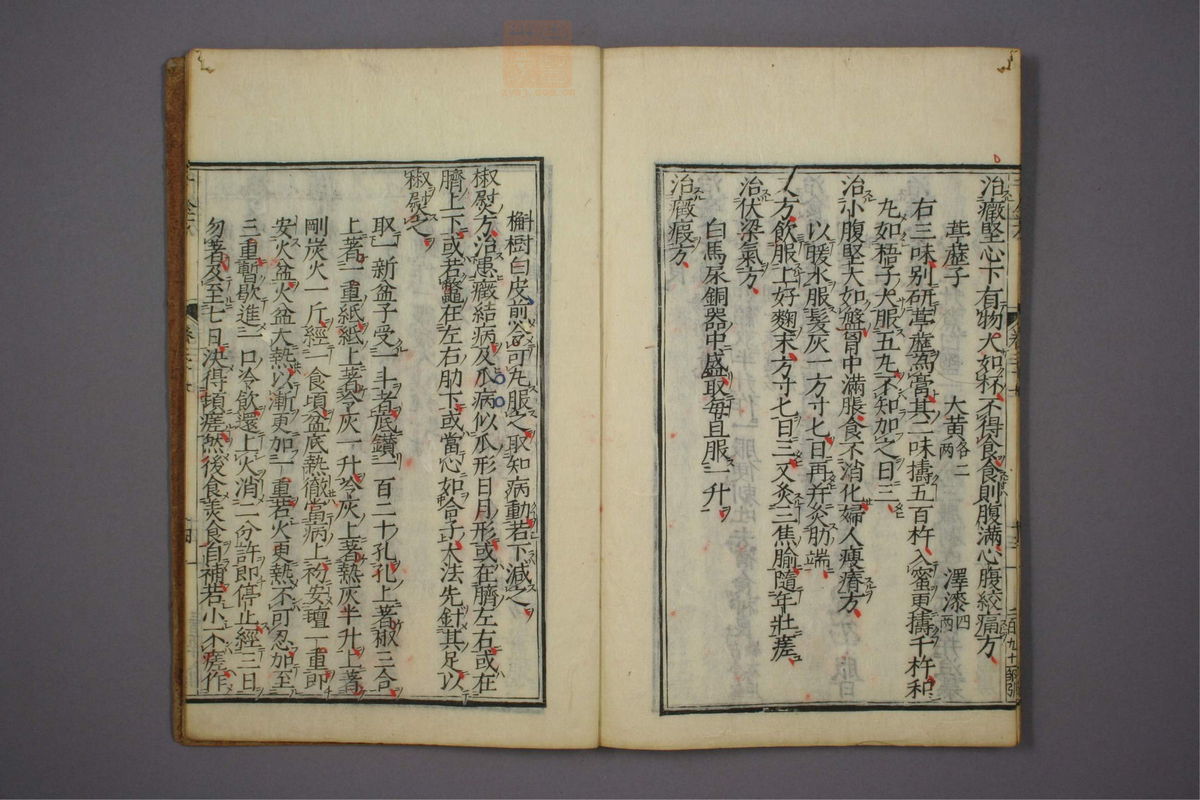 治癥堅心下有物大如杯不得食食則腹滿心腹絞痛方
葶藶子 大黃各二兩 澤漆四兩
右三味別研葶藶爲膏其二味擣五百杵入蜜更擣千杵和
丸如梧子大服五丸不知加之日三
治小腹堅大如盤胷中滿脹食不消化婦人瘦瘠方
以暖水服髮灰一方寸匕日再并灸肋端
又方飲服上好麴末方寸匕日三又灸三焦腧隨年壯瘥
治伏梁氣方
白馬尿銅器中盛取每旦服一升
治癥瘕方
槲樹白皮煎令可丸服之取知病動若下減之
椒熨方治患癥結病及瓜病似瓜形日月形或在臍左右或在
臍上下或若鼈在左右肋下或當心如合子大法先針其足以
椒熨之
取一新盆子受一斗者底鑚一百二十孔孔上著椒三合
上著一重紙紙上著冷灰一升冷灰上著熱灰半升上著
剛炭火一斤經一食頃盆底熱徹當病上初安氊一重即
安火盆火盆大熱以漸更加一重若火更熱不可忍加至
三重暫歇進一口冷飲還上火消二分許即停止經三日
勿著及至七日決得頓瘥然後食美食自補若小不瘥作